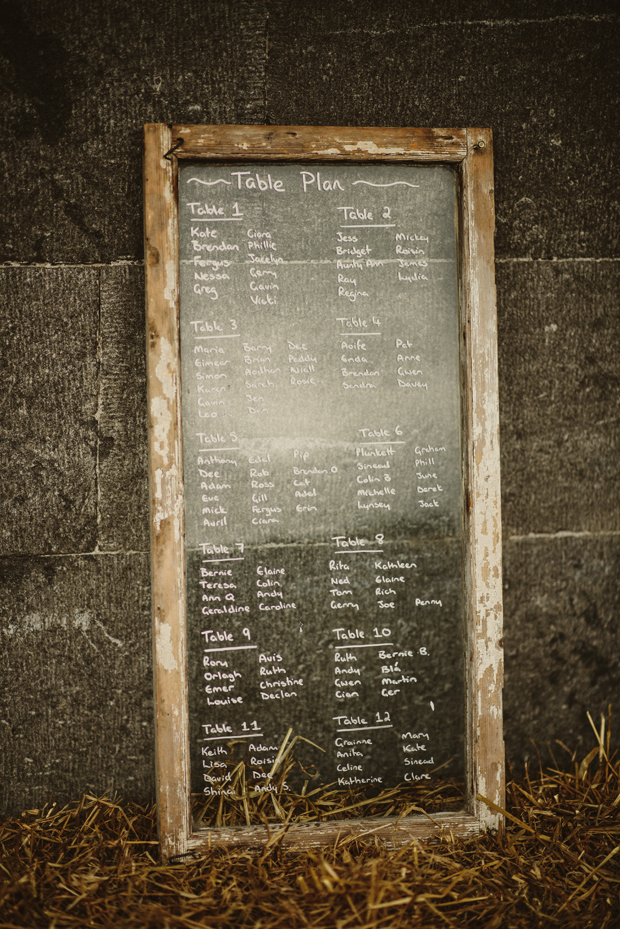 Table Plan
Table 1
Kate Ciara
Brendan Phillie
Fergus Jocelyn
Nessa Gerry
Greg Gavin
Vicki
Table 2
Jess Mickey
Bridget Roisin
Aunty Ann James
Ray Lydia
Regina
Table 3
Maria Barry Dee
Eimear Brian Paddy
Simon Aodhan Niall
Karen Sarah Rosie
Gavin Jen
Leo
Table 4
Aoife Pat
Enda Anne
Brendan Gwen
Sandra Davey
Table 5
Anthony Edel Pip
Dee Rob Brendan O
Adam Ross Cat
Eve Gill Adel
Mick Fergus Erin
Avril Ciara
Table 6
Plunkett Graham
Sinead Phill
Colin B June
Michelle Derek
Lynsey Jack
Table 7
Bernie Elaine
Teresa Colin
Ann Q Andy
Geraldine Caroline
Table 8
Rita Kathleen
Ned Elaine
Tom Rich
Gerry Joe Penny
Table 9
Rory Avis
Orlagh Ruth
Emer Christine
Louise Declan
Table 10
Ruth Bernie B.
Andy Blá
Gwen Martin
Cian Ger
Table 11
Keith Adam
Lisa Roisin
David Dee
Shina Andy S.
Table 12
Grainne Mary
Anita Kate
Celine Sinead
Katherine Clare